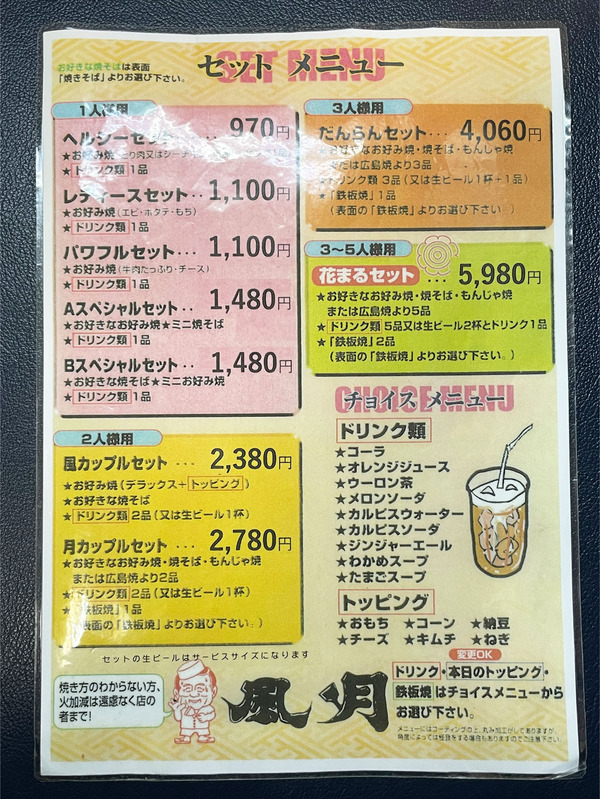 お好きな焼そばは表面
「焼きそば」よりお選び下さい。
SET MENU
セット メニュー
1人様用
ヘルシーセット 970円
★お好み焼
★ドリンク類 1品
レディースセット・・・1,100円
★お好み焼(エビ・ホタテ・もち)
★ドリンク類 1品
パワフルセット・・・1,100円
★お好み焼(牛肉たっぷり・チーズ)
★ドリンク類 1品
Aスペシャルセット・・・1,480円
★お好きなお好み焼★ミニ焼そば
★ドリンク類 1品
Bスペシャルセット・・・1,480円
★お好きな焼そば★ミニお好み焼
★ドリンク類 1品
2人様用
風カップルセット・・・2,380円
★お好み焼(デラックス+トッピング)
★お好きな焼そば
★ドリンク類 2品(又は生ビール1杯)
月カップルセット・・・2,780円
★お好きなお好み焼・焼そば・もんじゃ焼
または広島焼より2品
★ドリンク類 2品(又は生ビール1杯)
★「鉄板焼」1品
(表面の「鉄板焼」よりお選び下さい。)
3人様用
だんらんセット・・・4,060円
★お好きなお好み焼・焼そば・もんじゃ焼
または広島焼より3品
★ドリンク類 3品(又は生ビール1杯+1品)
★「鉄板焼」1品
(表面の「鉄板焼」よりお選び下さい。)
3〜5人様用
花まるセット・・・5,980円
★お好きなお好み焼・焼そば・もんじゃ焼
または広島焼より5品
★ドリンク類 5品又は生ビール2杯とドリンク1品
★「鉄板焼」2品
(表面の「鉄板焼」よりお選び下さい。)
CHOICE MENU
チョイス メニュー
ドリンク類
★コーラ
★オレンジジュース
★ウーロン茶
★メロンソーダ
★カルピスウォーター
★カルピスソーダ
★ジンジャーエール
★わかめスープ
★たまごスープ
トッピング
★おもち ★コーン ★納豆
★チーズ ★キムチ ★ねぎ
セットの生ビールはサービスサイズになります
焼き方のわからない方、
火加減は遠慮なく店の
者まで!
風月
変更OK
ドリンク・本日のトッピング・
鉄板焼 はチョイスメニューから
お選び下さい。
メニューにはコーティングの上、丸み加工がしてありますが、
角度によっては怪我をする場合もありますのでご注意下さい。